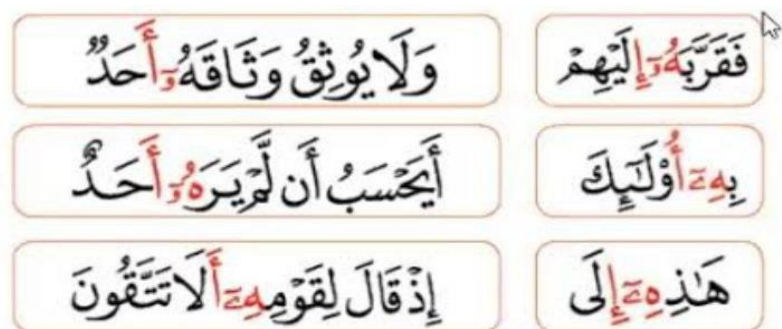 فَقَرَّبَهُۥٓ إِلَيْهِمْ
وَلَا يُوثِقُ وَثَاقَهُۥٓ أَحَدٌ
بِهِۦٓ أُو۟لَـٰٓئِكَ
أَيَحْسَبُ أَن لَّمْ يَرَهُۥٓ أَحَدٌ
هَـٰذِهِۦٓ إِلَى
إِذْ قَالَ لِقَوْمِهِۦٓ أَلَا تَتَّقُونَ